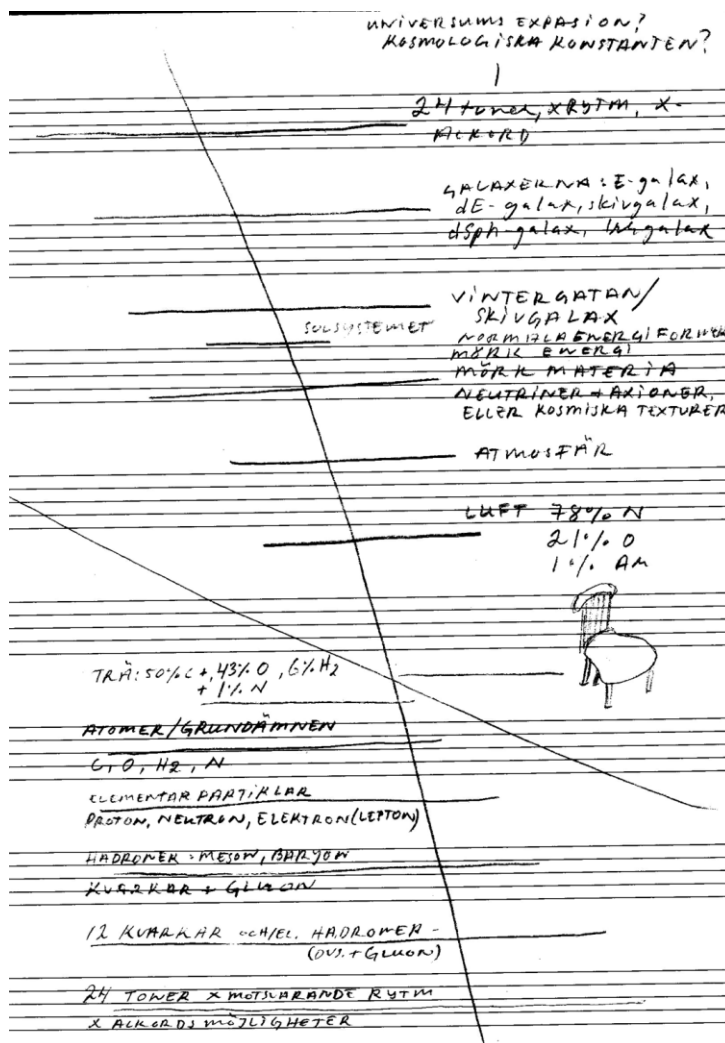 UNIVERSUMS EXPASION?
KOSMOLOGISKA KONSTANTEN?
24 toner, X RYTM, X-
ACKORD
GALAXERNA: E-galax,
dE-galax, skivgalax,
dSph-galax, Irr galax
VINTERGATAN/
SKIVGALAX
SOLSYSTEMET
NORMALA ENERGIFORMER
MÖRK ENERGI
MÖRK MATERIA
NEUTRINER + AXIONER,
ELLER KOSMISKA TEXTURER
ATMOSFÄR
LUFT 78% N
21% O
1% Ar
TRÄ: 50% C +, 43% O, 6% H2
+ 1% N
ATOMER/GRUNDÄMNEN
C, O, H2, N
ELEMENTARPARTIKLAR
PROTON, NEUTRON, ELEKTRON (LEPTON)
HADRONER: MESON, BARYON
KVARKAR + GLUON
12 KVARKAR OCH/EL. HADRONER -
(DVS. + GLUON)
24 TONER X MOTSVARANDE RYTM
X ACKORDSMÖJLIGHETER